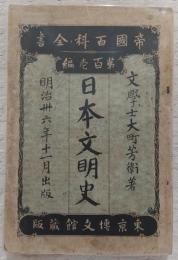 書全科百國帝
編壱百第
文學士大町芳衛著
日本文明史
明治卅六年十一月出版
版藏館文博京東